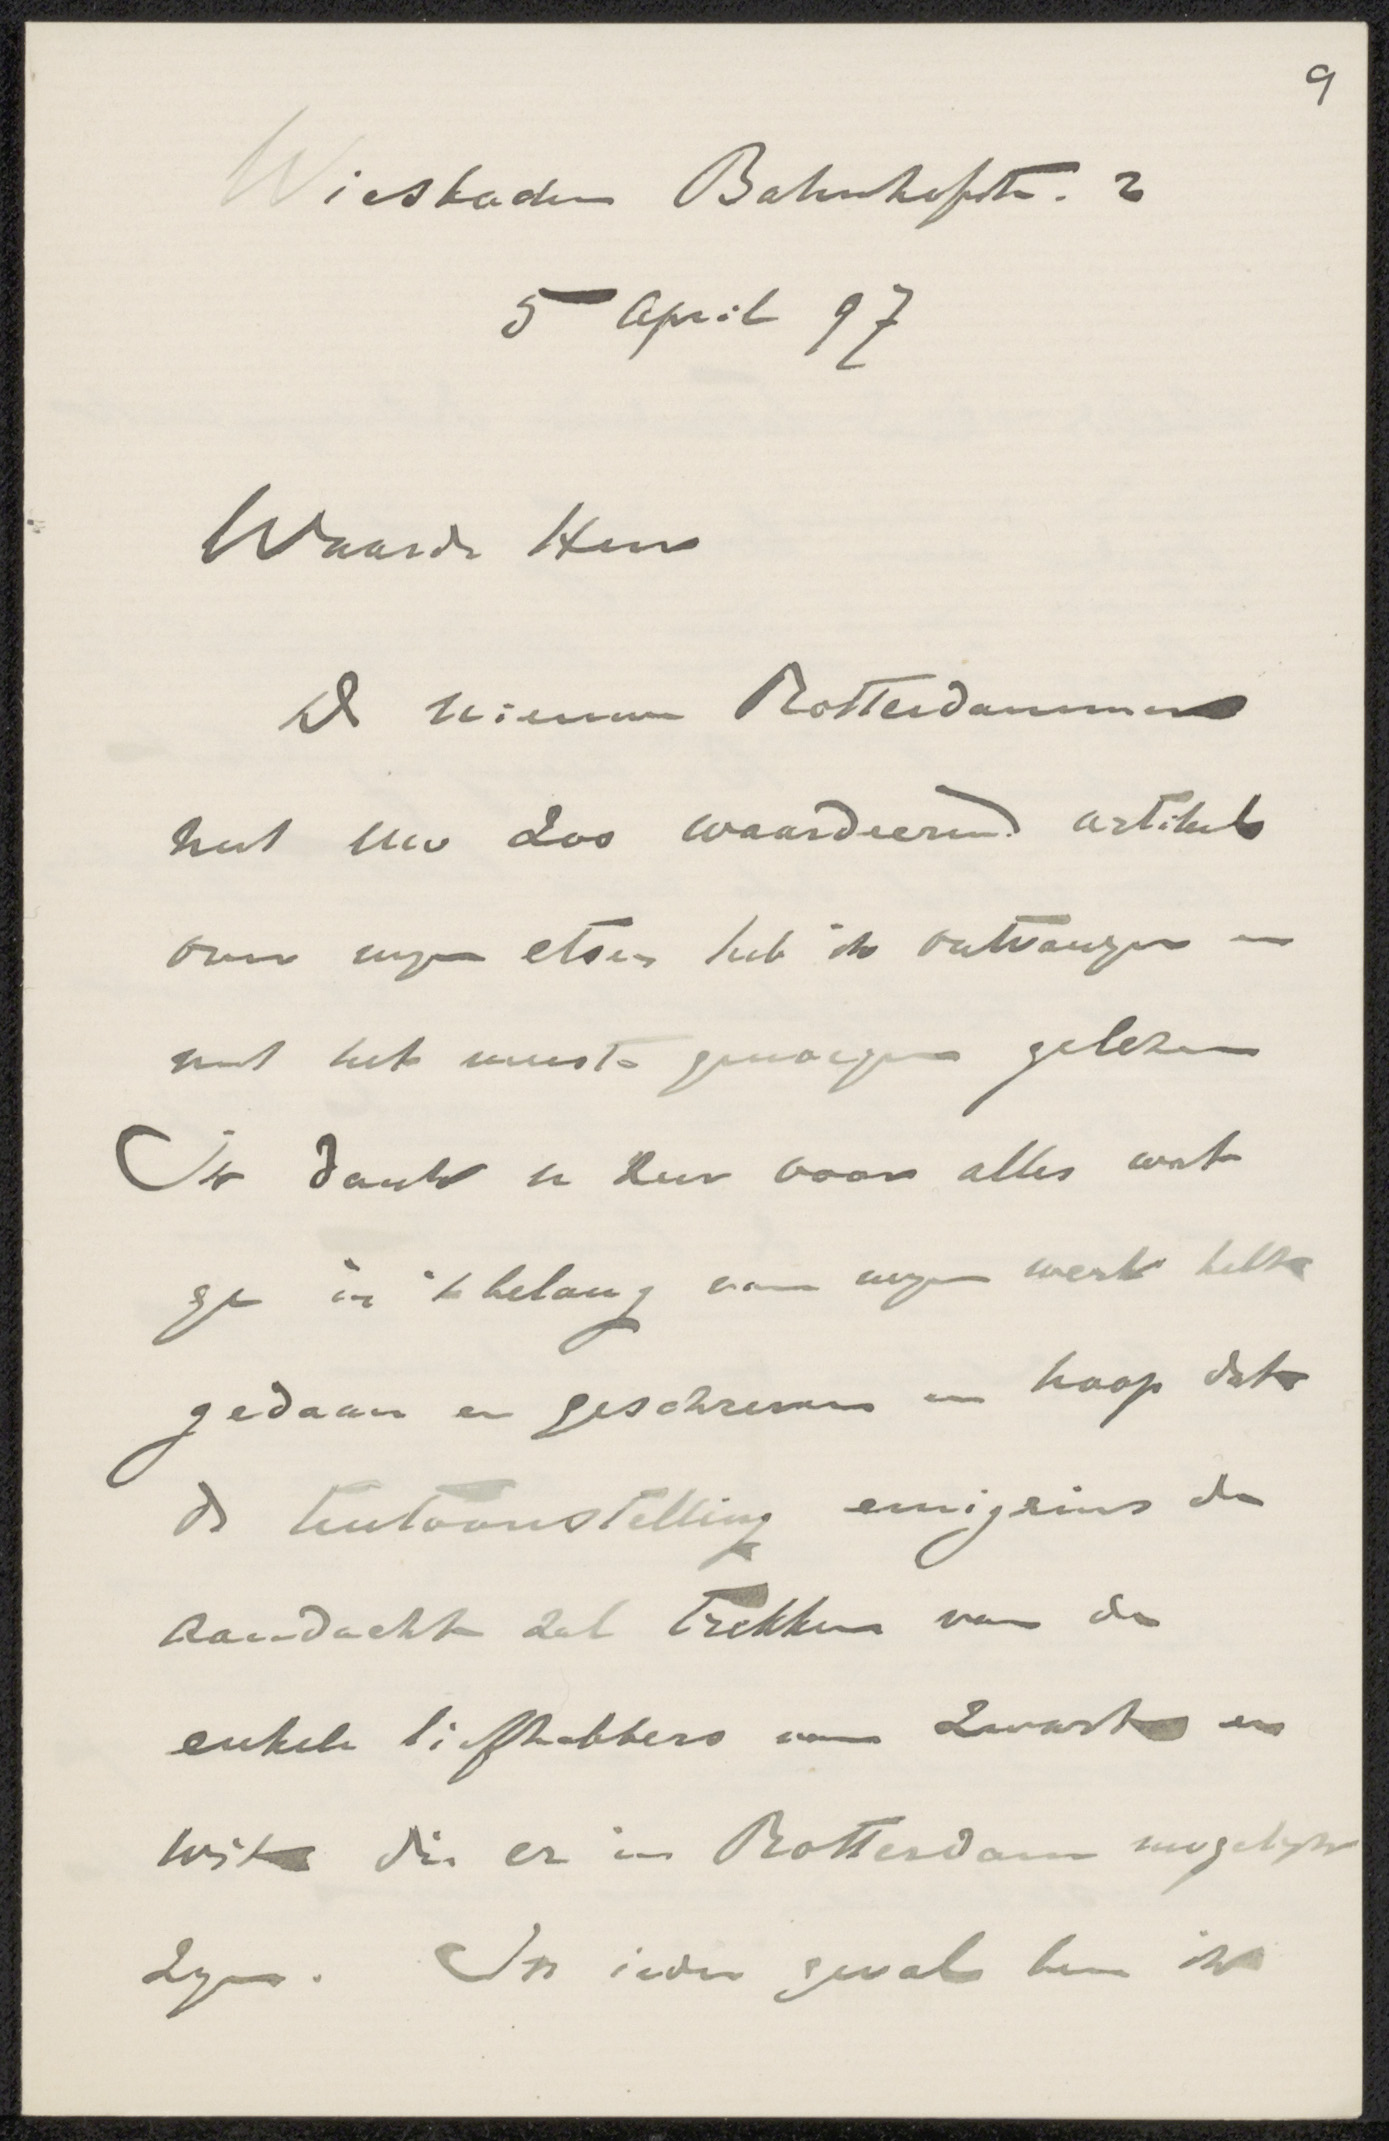 9
Wiesbaden Bahnhofstr. 2
5 April 97
Waarde Heer
De nieuwe Rotterdammer
met Uw zoo waardeerend artikel
over myn etsen heb ik ontvangen en
met het meeste genoegen gelezen
Ik dank u zeer voor alles wat
ge in 't belang van myn werk hebt
gedaan en geschreven en hoop dat
de tentoonstelling eenigzins de
aandacht zal trekken van de
enkele liefhebbers van zwart en
wit die er in Rotterdam mogelyk
zyn. In ieder geval ben ik